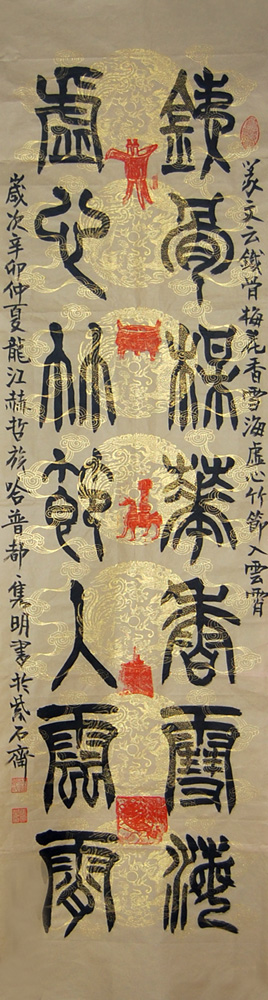 釋文云鐵骨梅花香雪海虛心竹節入雲霄
鐵骨楳華香雪海
虛心竹節入雲霄
歲次辛卯仲夏龍江赫哲族哈普都·隽明書於紫石齋